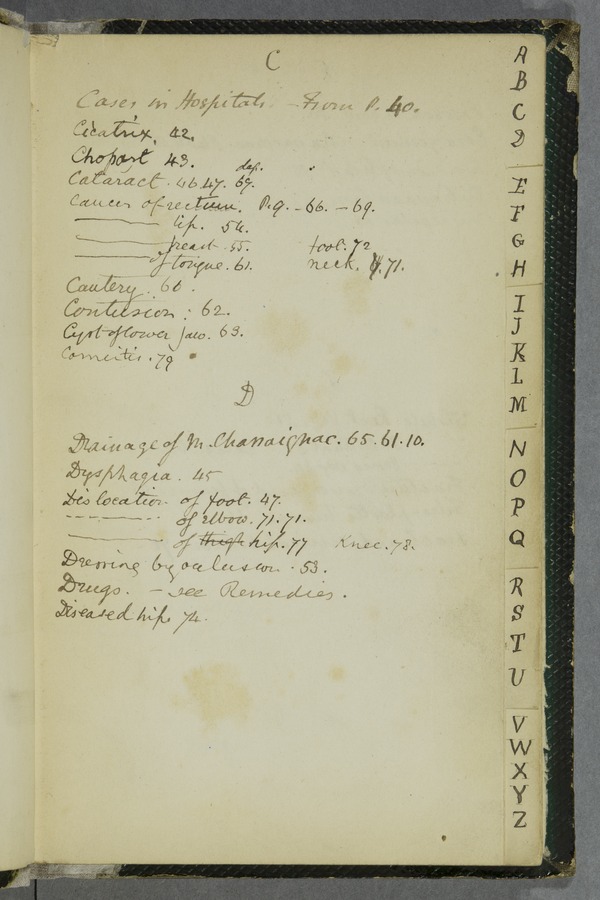 C
Cases in Hospitals. - From P. 40.
Cicatrix 42.
Chopart 43.
Cataract. 46 47. 69.
Cancer of rectum. P. 9. - 66. - 69.
——— lip. 54.
——— breast. 55. foot. 72
——— of tongue. 61. neck. 71.
Cautery. 60.
Contusion: 62.
Cyst of lower jaw. 63.
79
D
Drainage of M. Chassaignac. 65. 61. 10.
Dysphagia. 45
Dislocation of foot. 47.
——— of elbow. 71. 71.
——— of thigh hip. 77 Knee. 78.
Dressing by occlusion. 53.
Drugs. - see Remedies.
Diseased hip 74.
A
B
C
D
E
F
G
H
I
J
K
L
M
N
O
P
Q
R
S
T
U
V
W
X
Y
Z